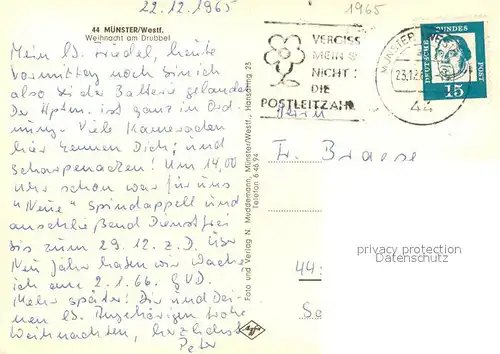 22.12.1965
1965
44 MÜNSTER/Westf.
Weihnacht am Drubbel
Mein lb. Friedel heute
Vormittag noch bin ich
also zu der Batterie
Der Hptm. ist ganz in Ord-
nung. Viele Kameraden
hier kennen Dich; und
Scharpenacken! Um 14,00
Uhr schon war für uns
"Neue" Spindappell und
anschließend Dienstfrei
bis zum 29.12. z.D. über
Neu Jahr haben wir Wache
ich am 2.1.66. GVD.
Mehr später! Dir und Dei-
nen lb. Angehörigen frohe
Weihnachten, herzlichst
Peter
Foto und Verlag N. Muddemann, Münster/Westf., Hansaring 23
Telefon 6 46 94
Agfa
VERGISS
MEIN
NICHT:
DIE
POSTLEITZAHL
MÜNSTER
23.12.
44
DEUTSCHE BUNDESPOST
15
Herrn
Fr. Braese
44:
privacy protection
www.oldthing.de